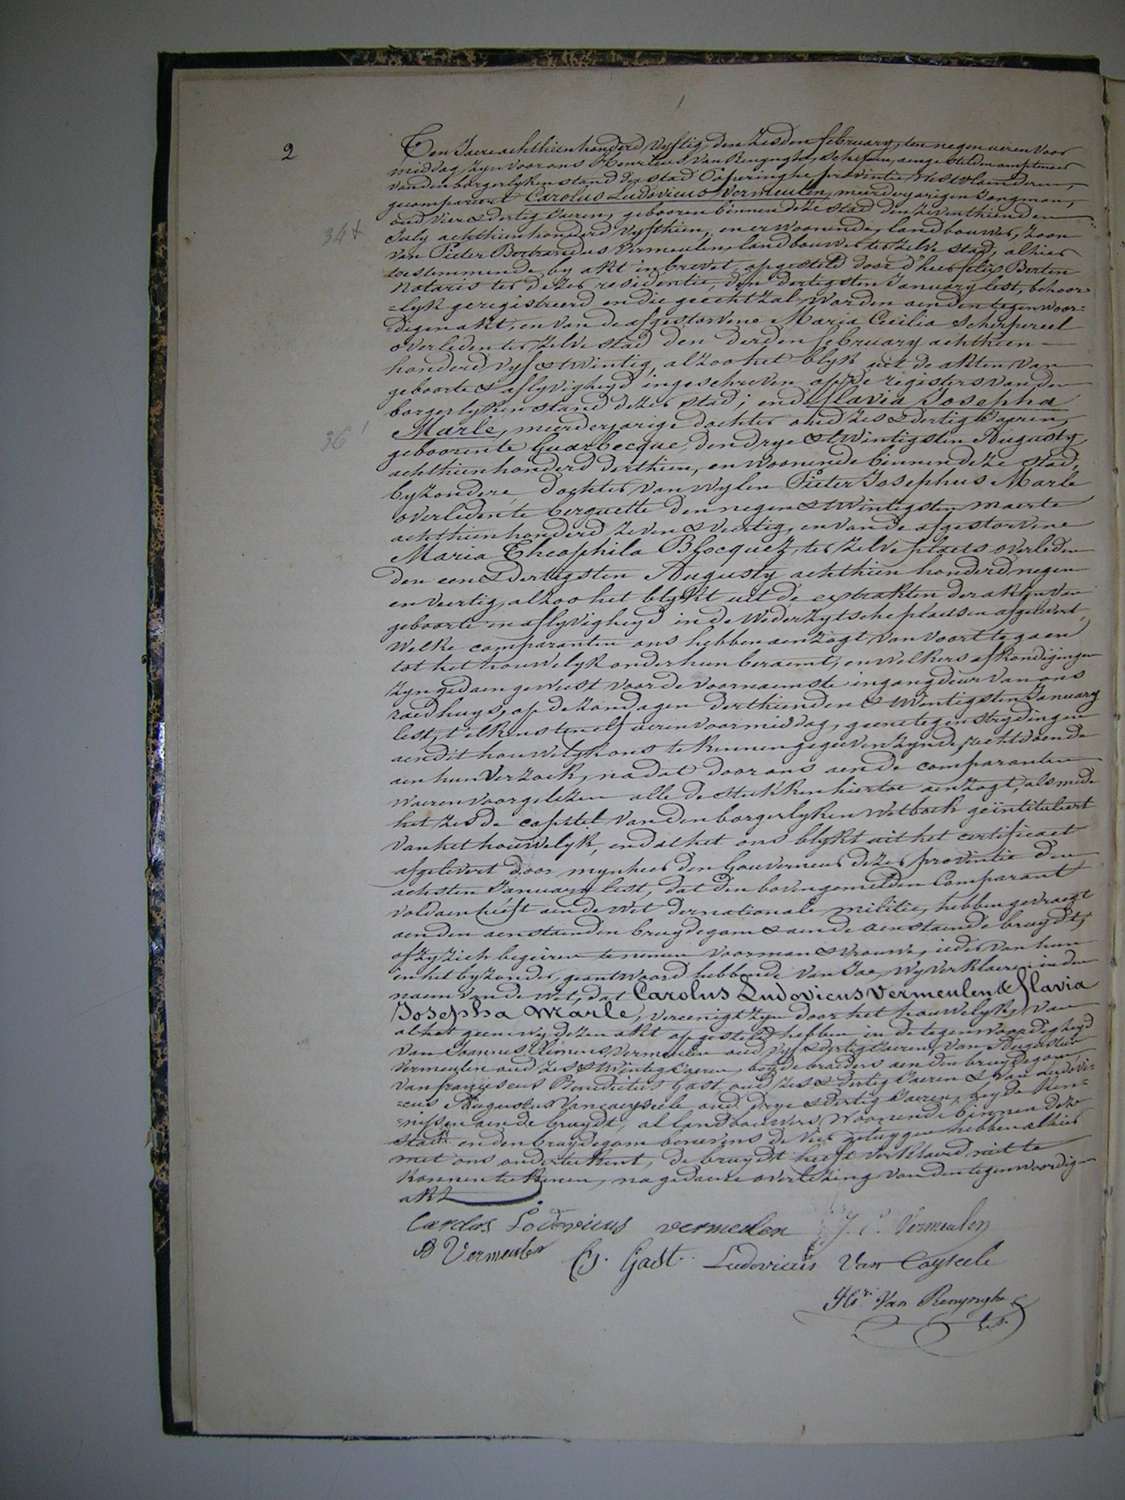 1
2
Ten Jaere achthien honderd vyftig, den zesden february, ten negen ueren voor
middag, zyn voor ons Henricus Van Renynghe, schepen, aengestelden amptenaer
van den borgerlyken stand der stad Poperinghe provintie Westvlaenderen,
gecompareert Carolus Ludovicus Vermeulen, meerderjarigen Jongman,
oud vier & dertig Jaeren, gebooren binnen deze stad den zeventhienden
34 July achthien honderd vyfthien, en er woonende, landbouwer, zoon
van Pieter Bertrandus Vermeulen landbouwer terzelve stad, alhier
toestemmende by akt in brevet, opgesteld door d'heer felix Berten
Notaris ter dezer residentie, den dertigsten January lest, behoor-
=lyk geregistreerd en die gehecht zal worden aen den tegenwoor-
=digen akt, en van de afgestorvene Maria Cecilia Scherpereel
overleden terzelve stad den derden february achthien-
honderd vyf & twintig, alzoo het blykt uit de akten van
geboorte & aflyvigheyd ingeschreven op de registers van den
borgerlyken stand dezer stad; ende flavia Josepha
36 Marle, meerderjarige dochter oud zes & dertig Jaeren,
geboren te Guarbecque, den drye & twintigsten Augusty
achthien honderd derthien, en woonende binnen deze stad,
byzondere, dochter van wylen Pieter Josephus Marle
overleden te berguette den negen & twintigsten maerte
achthien honderd zeven & veertig, en van de afgestorvene
Maria Theophila Blocquez, ter zelve plaets overleden
den een & dertigsten Augusty achthien honderd negen
en veertig, alzoo het blykt uit de extrakten der akten van
geboorte en aflyvigheyd in de wederzytsche plaetsen afgelevert,
Welke comparanten ons hebben aenzogt van voort te gaen
tot het houwelyk onder hun beraemt, en welkers afkondigingen
zyn gedaen geweest voor de voornaemste ingangdeur van ons
raedhuys, op de zondagen derthienden & twintigsten January
lest, telkens ten elf ueren voormiddag, geene tegenstrydingen
aen dit houwelyk ons te kennen gegeven zynde, recht doende
aen hun verzoek, na dat door ons aen de comparanten
waeren voorgelezen alle de stukken hiertoe aenzogt, als mede
het zesde capittel van den borgerlyken wetboek geïntituleert
van het houwelyk, en dat het ons blykt uit het certificaet
afgelevert door mynheer den Gouverneur dezer provintie den
achsten January lest, dat den bovengemelden Comparant
voldaen heeft aen de wet der nationale militie, hebben gevraegt
aen den aenstaenden bruydegom & aen de aenstaende bruydt,
of zy zich begeiren te nemen voor man & vrouwe, ieder van hun
in het byzonder, geantwoord hebbende van Jae, Wy verklaeren in den
naem van de wet, dat Carolus Ludovicus Vermeulen & flavia
Josepha Marle, vereenigt zyn door het houwelyk, van
al het geene wy dezen akt opgesteld hebben in de tegenwoordigheyd
van Joannes Clemens Vermeulen oud vyf & dertig Jaeren, van Augustin
Vermeulen oud zes & twintig Jaeren, beyde broeders aen den bruydegom
van franciscus Benedictus Gast, oud zes & dertig Jaeren & van Ludovi-
=cus Augustus Vancayseele oud drye & dertig Jaeren, beyde ken-
=nissen aen de bruydt, al landbouwers, woonende binnen deze
stad, en den bruydegom benevens de vier getuygen hebben alhier
met ons onderteekent, de bruydt heeft verklaerd niet te
konnen teekenen, na gedaene overlezing van den tegenwoordigen
akt
Carolus Lodovicus vermeulen J. C. Vermeulen
A Vermeulen B. Gast Ludovicus Van Cayseele
Hri Van Renynghe